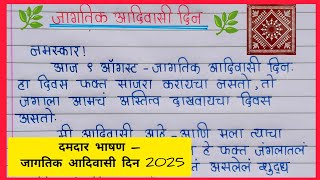 जागतिक आदिवासी दिन
नमस्कार!
आज ९ ऑगस्ट - जागतिक आदिवासी दिन.
हा दिवस फक्त साजरा करायचा नसतो, तो
जगाला आमचं अस्तित्व दाखवायचा दिवस
असतो.
मी आदिवासी आहे - आणि मला त्याचा
हे फक्त जंगलातलं
असलेलं शुद्ध
दमदार भाषण –
जागतिक आदिवासी दिन 2025